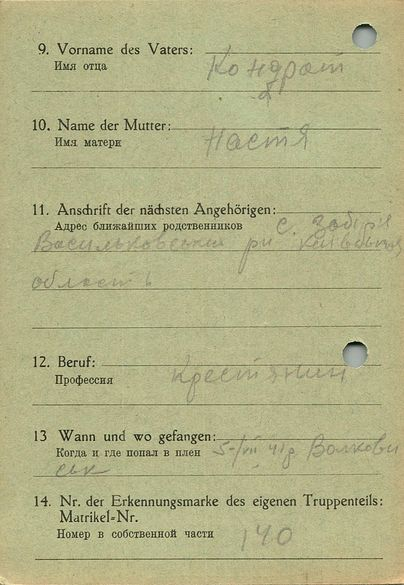 9. Vorname des Vaters:
Имя отца
Кондрат
10. Name der Mutter:
Имя матери
Настя
11. Anschrift der nächsten Angehörigen:
Адрес ближайших родственников с.
Васильковський рн
область
12. Beruf:
Профессия
Крестянин
13 Wann und wo gefangen:
Когда и где попал в плен 5-/VII 41г Волкови
ськ
14. Nr. der Erkennungsmarke des eigenen Truppenteils:
Matrikel=Nr.
Номер в собственной части
140